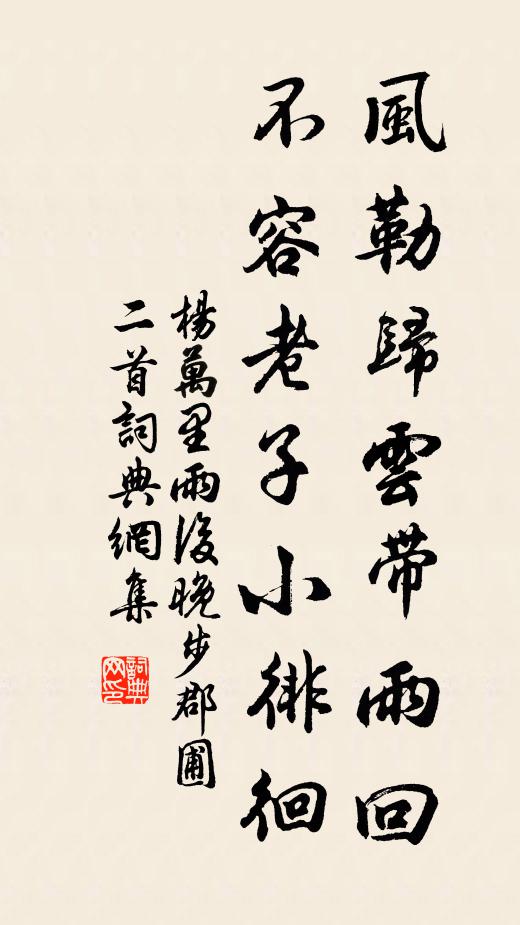 風勒歸雲帶雨回
不容老子小徘徊
楊萬里雨後晚步郡圃
二首詞典網集
詞典
网印